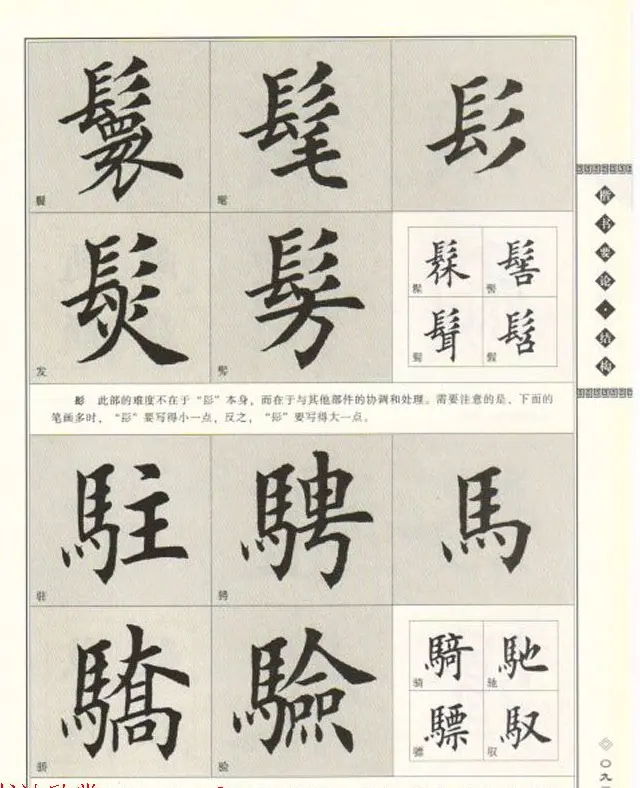 鬟 髦 髟
髦
髹 髻
发 髣
髯 髫
髟 此部的难度不在于“髟”本身，而在于与其他部件的协调和处理。需要注意的是，下面的
笔画多时，“髟”要写得小一点，反之，“髟”要写得大一点。
駐 騁 馬
驻 骋
驕 驗
騎 馳
骑 驰
驃 馭
骄 验 骠 驭
楷书要论·结构